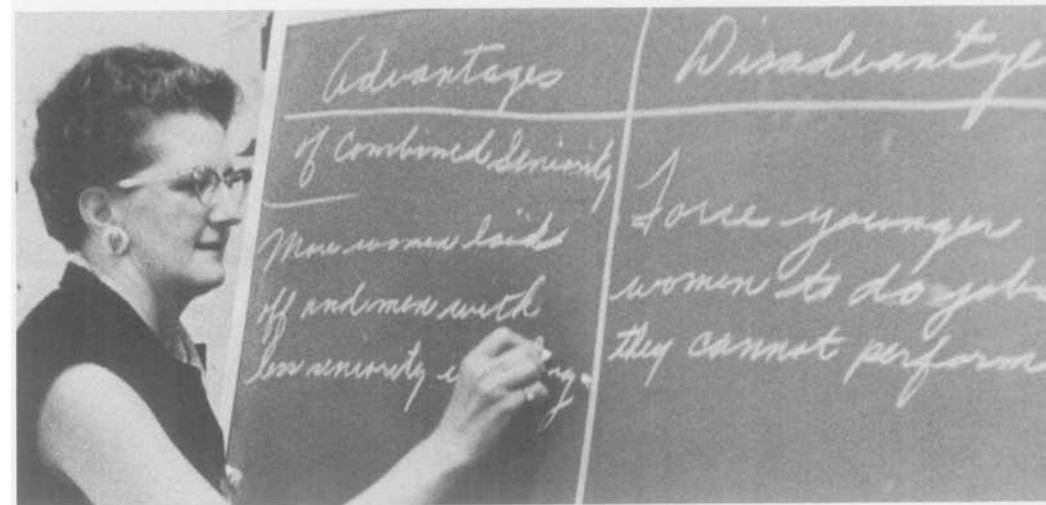 Advantages
of Combined Seniority
More women laid
off and men with
less seniority
Disadvantage
Force younger
women to do jobs
they cannot perform